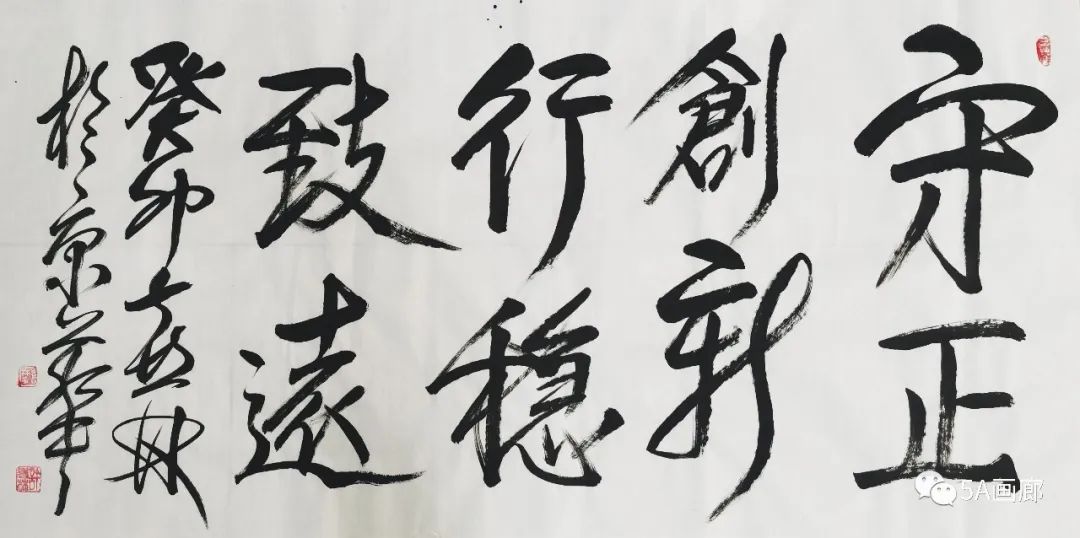 守正
創新
行穩
致遠
癸卯
於京華
5A画廊